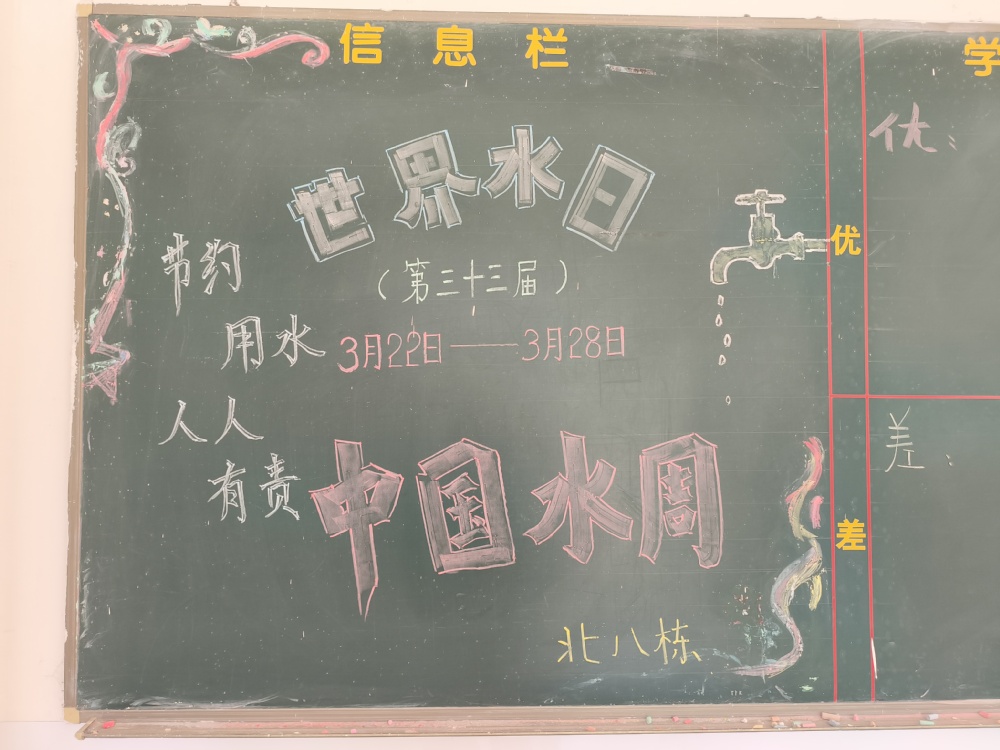 信息栏
世界水日
（第三十三届）
3月22日——3月28日
节约
用水
人人
有责
中国水周
北八栋
学
优
优：
差
差：